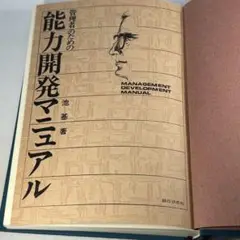 管理者のための
能力開発マニュアル
池 基 著
MANAGEMENT
DEVELOPMENT
MANUAL